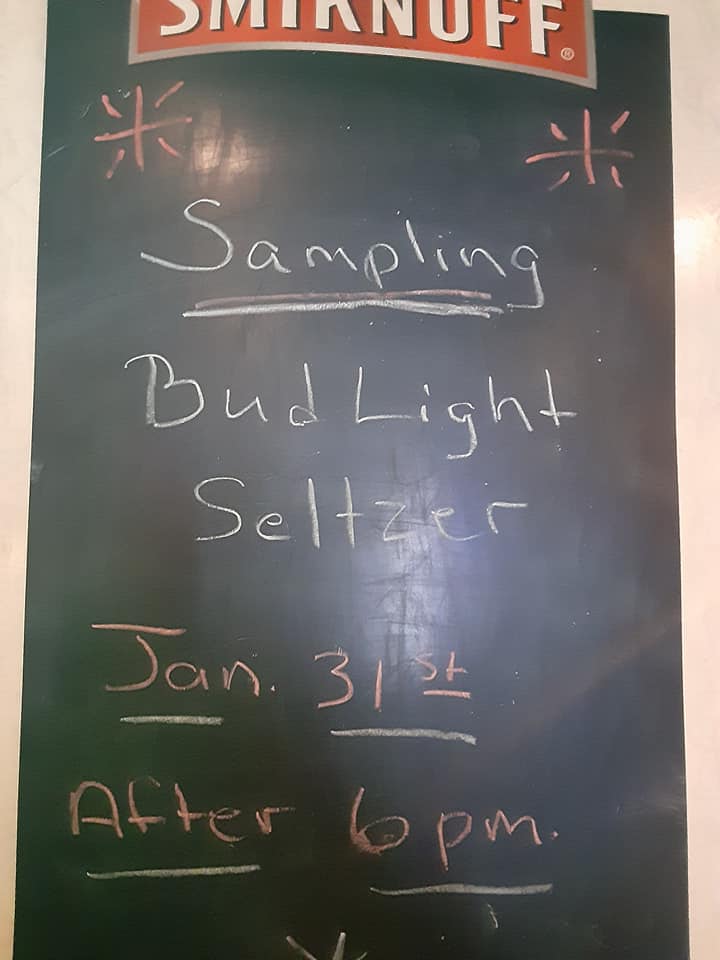 SMIRNOFF®
Sampling
Bud Light
Seltzer
Jan. 31st
After 6 pm.